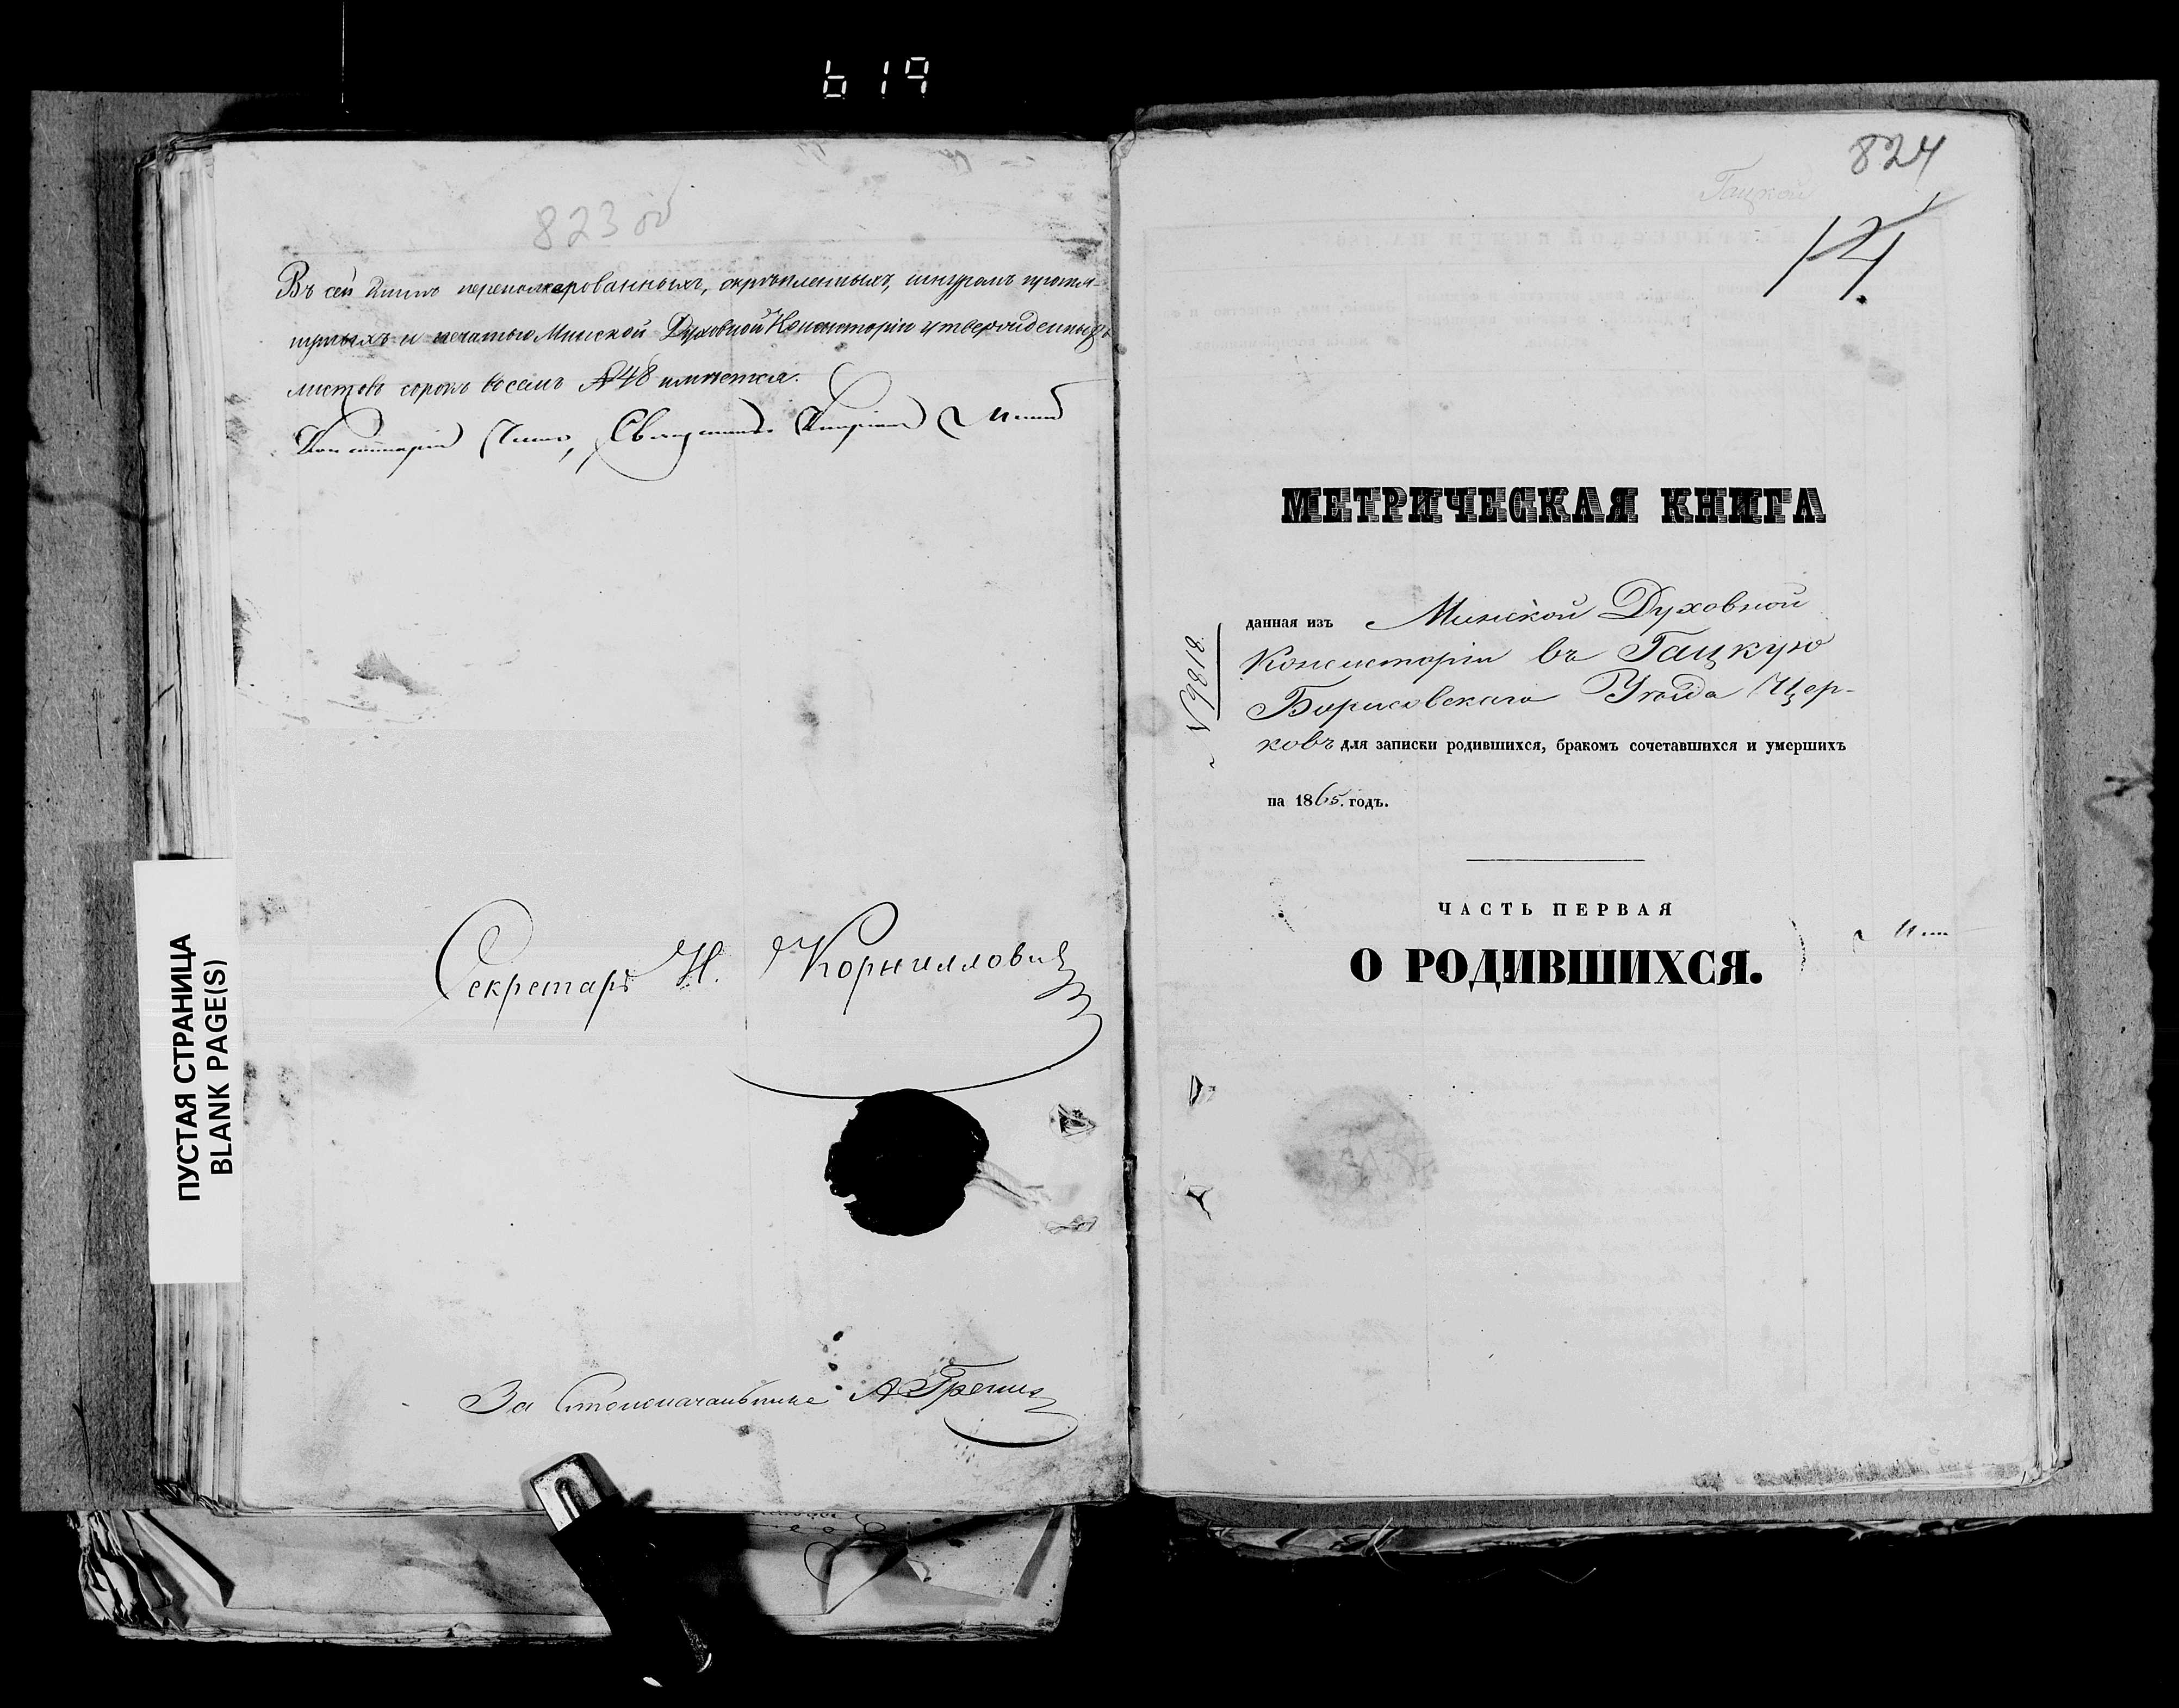 619
823 об
Въ сей книгѣ перенумерованныхъ, скрѣпленныхъ, шнуромъ протя-
нутыхъ и печатью Минской Духовной Консисторіи утвержденныхъ
листовъ сорокъ восемь №48 имѣется.
Консисторіи Членъ, Священникъ
Секретарь Н. Корниловичъ
За Столоначальника А
ПУСТАЯ СТРАНИЦА
BLANK PAGE(S)
824
Гацкой
14.
МЕТРИЧЕСКАЯ КНИГА
данная изъ Минской Духовной
Консисторіи въ Гацкую
Борисовскаго Уѣзда Цер-
ковь для записки родившихся, бракомъ сочетавшихся и умершихъ
на 1865. годъ.
ЧАСТЬ ПЕРВАЯ
О РОДИВШИХСЯ.